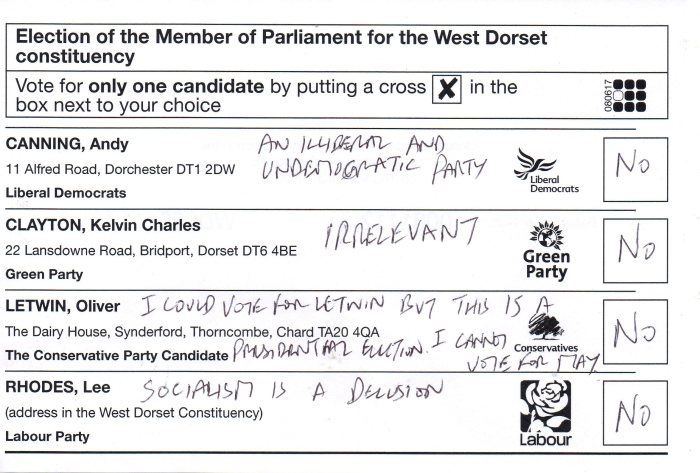 Election of the Member of Parliament for the West Dorset
constituency
Vote for only one candidate by putting a cross X in the
box next to your choice
080617
CANNING, Andy
AN ILLIBERAL AND
11 Alfred Road, Dorchester DT1 2DW
UNDEMOCRATIC PARTY
Liberal Democrats
Liberal
Democrats
No
CLAYTON, Kelvin Charles
IRRELEVANT
22 Lansdowne Road, Bridport, Dorset DT6 4BE
Green Party
Green
Party
No
LETWIN, Oliver
I COULD VOTE FOR LETWIN BUT THIS IS A
The Dairy House, Synderford, Thorncombe, Chard TA20 4QA
The Conservative Party Candidate
PRESIDENTIAL ELECTION. I CANNOT
VOTE FOR MAY
Conservatives
No
RHODES, Lee
SOCIALISM IS A DELUSION
(address in the West Dorset Constituency)
Labour Party
Labour
No